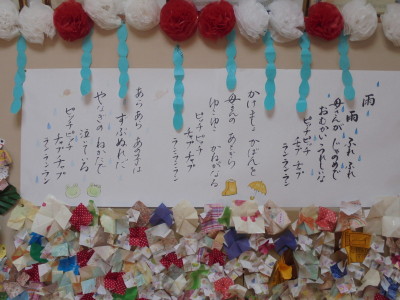 雨
雨 ふれ ふれ
母さんが じゃのめで
おむかい うれしいな
ピッチピッチ チャプ チャプ ランランラン
かけましょ かばんを
母さんの あとから
ゆこゆこ かねがなる
ピッチピッチ チャプ チャプ ランランラン
あらあら あの子は
ずぶぬれだ
やなぎの ねかたで
泣いてる
ピッチピッチ チャプチャプ ランランラン